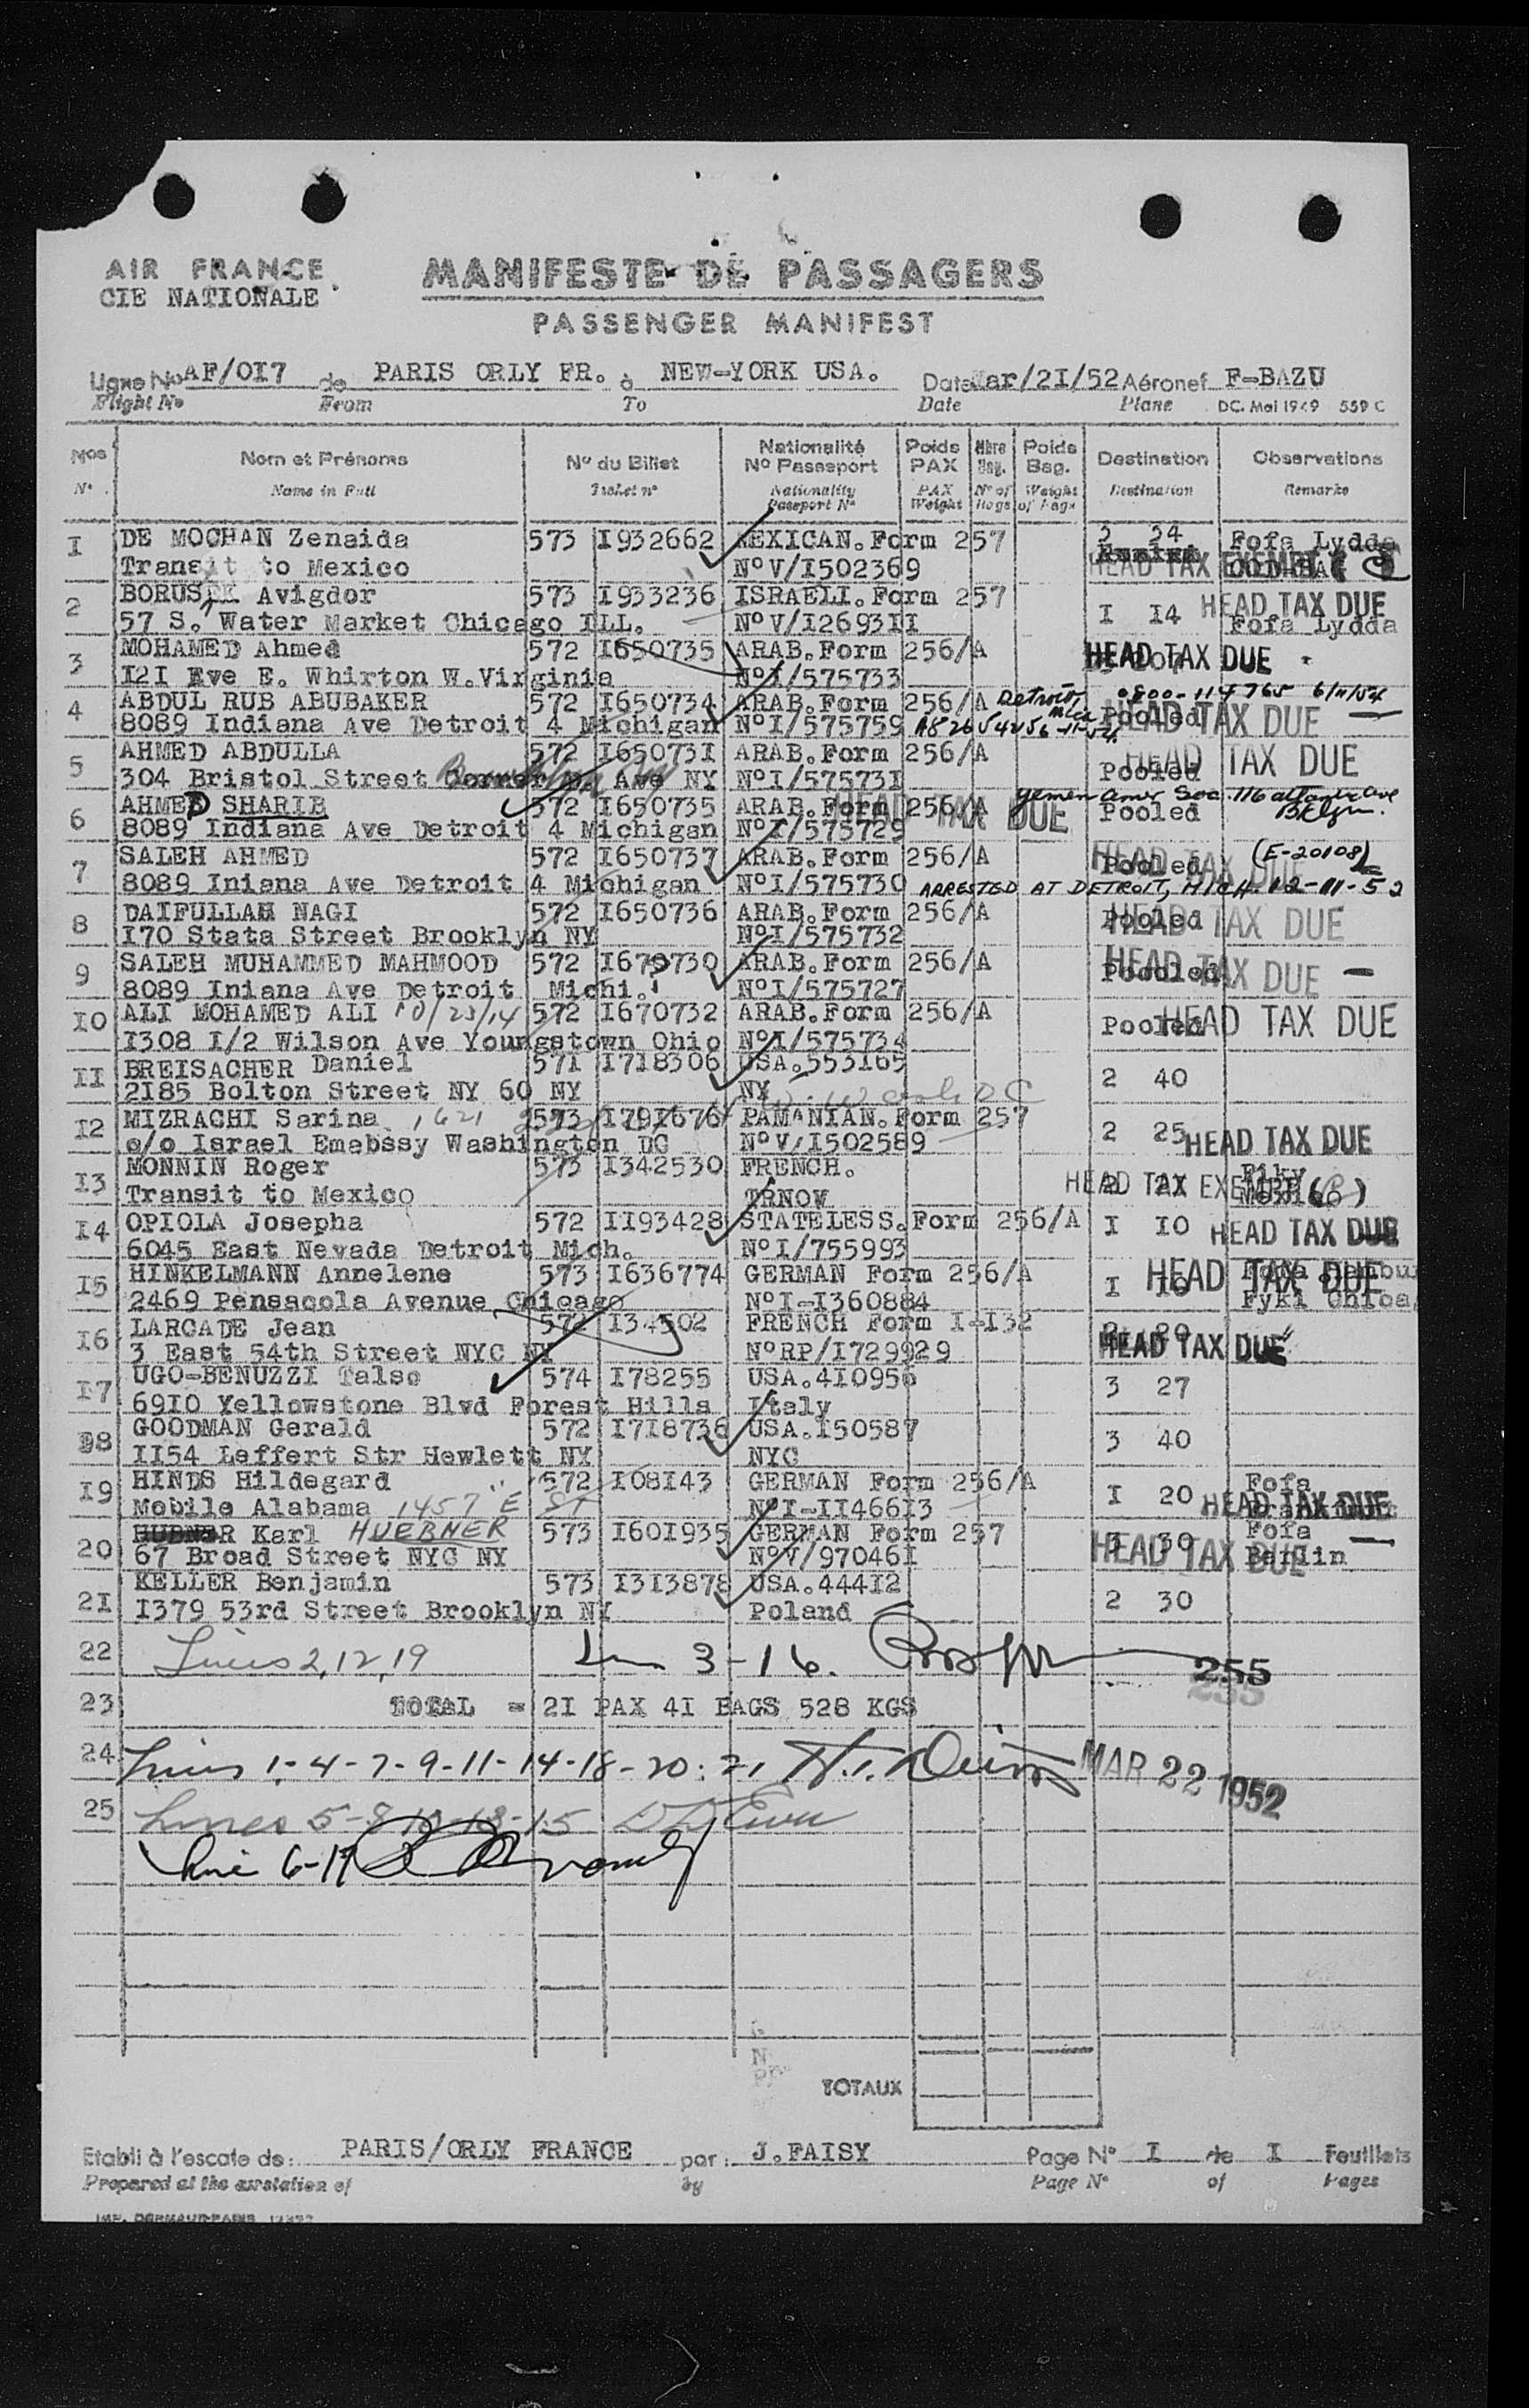 AIR FRANCE
CIE NATIONALE
MANIFESTE DE PASSAGERS
PASSENGER MANIFEST
Ligne No AF/OI7 de PARIS ORLY FR. à NEW-YORK USA. Date Mar/2I/52 Aéronef F-BAZU
Flight No From To Date Plane DC. Mai 1949 559 C
Nos Nom et Prénoms No du Billet Nationalité No Passeport Poids PAX Nbre Bag. Poids Bag. Destination Observations
N° Name in Full Ticket n° Nationality Passport N° PAX Weight N° of Bags Weight of Bags Destination Remarks
I DE MOCHAN Zenaida 573 I932662 MEXICAN.Form 257 3 34 Fofa Lydda
Transit to Mexico N°V/I502369 HEAD TAX EXEMPT
2 BORUS Avigdor 573 I933236 ISRAELI.Form 257 I I4 HEAD TAX DUE
57 S. Water Market Chicago ILL. N°V/I2693II Fofa Lydda
3 MOHAMED Ahmed 572 I650735 ARAB.Form 256/A HEAD TAX DUE
I2I Eve E. Whirton W.Virginia N°I/575733
4 ABDUL RUB ABUBAKER 572 I650734 ARAB.Form 256/A Detroit, Mich 0800-114765 6/11/54
8089 Indiana Ave Detroit 4 Michigan N°I/575759 Pooled HEAD TAX DUE
5 AHMED ABDULLA 572 I65073I ARAB.Form 256/A HEAD TAX DUE
304 Bristol Street Corner Ave NY N°I/57573I Pooled
6 AHMED SHARIB 572 I650735 ARAB.Form 256/A HEAD TAX DUE Yemen Amer Soc. 116 atlantic ave
8089 Indiana Ave Detroit 4 Michigan N°I/575729 Pooled Bklyn.
7 SALEH AHMED 572 I650737 ARAB.Form 256/A Pooled HEAD TAX DUE (E-20108)
8089 Iniana Ave Detroit 4 Michigan N°I/575730 ARRESTED AT DETROIT, MICH. 12-11-52
8 DAIFULLAH NAGI 572 I650736 ARAB.Form 256/A Pooled HEAD TAX DUE
I70 Stata Street Brooklyn NY N°I/575732
9 SALEH MUHAMMED MAHMOOD 572 I670730 ARAB.Form 256/A Poooled HEAD TAX DUE
8089 Iniana Ave Detroit Michi. N°I/575727
IO ALI MOHAMED ALI 10/23/14 572 I670732 ARAB.Form 256/A Pooled HEAD TAX DUE
I308 I/2 Wilson Ave Youngstown Ohio N°I/575734
II BREISACHER Daniel 57I I7I8306 USA.553I65 2 40
2I85 Bolton Street NY 60 NY NY
I2 MIZRACHI Sarina 1621 573 I79I676 PAMANIAN.Form 257 2 25 HEAD TAX DUE
c/o Israel Emabssy Washington DC N°V/I502589
I3 MONNIN Roger 573 I342530 FRENCH. HEAD TAX EXEMPT Fiky
Transit to Mexico TRNOV Mexico
I4 OPIOLA Josepha 572 II93428 STATELESS.Form 256/A I IO HEAD TAX DUE
6045 East Nevada Detroit Mich. N°I/755993
I5 HINKELMANN Annelene 573 I636774 GERMAN Form 256/A I IO HEAD TAX DUE
2469 Pensacola Avenue Chicago N°I-I360884 Fyki Chica
I6 LARCADE Jean 572 FRENCH Form I-I32 HEAD TAX DUE
3 East 54th Street NYC NY N°RP/I729929
I7 UGO-BENUZZI Talso 574 I78255 USA.4I0956 3 27
69I0 Yellowstone Blvd Forest Hills Italy
I8 GOODMAN Gerald 572 I7I8738 USA.I50587 3 40
II54 Leffert Str Hewlett NY NYC
I9 HINDS Hildegard 572 I08I43 GERMAN Form 256/A I 20 Fofa
Mobile Alabama 1457 E St N°I-II466I3 HEAD TAX DUE
20 HUBNER Karl HUEBNER 573 I60I935 GERMAN Form 257 3 30 Fofa
67 Broad Street NYC NY N°V/97046I HEAD TAX DUE Berlin
2I KELLER Benjamin 573 I3I3878 USA.444I2 2 30
I379 53rd Street Brooklyn NY Poland
22 Lines 2, 12, 19 Lin 3-16. 255
23 TOTAL = 2I PAX 4I BAGS 528 KGS
24 Lines 1-4-7-9-11-14-18-20-21 MAR 22 1952
25 Lines 5-8-10-13-15
Line 6-17
TOTAUX
Etabli à l'escale de: PARIS/ORLY FRANCE par: J.FAISY Page N° I de I Feuillets
Prepared at the airstation of by Page N° of Pages